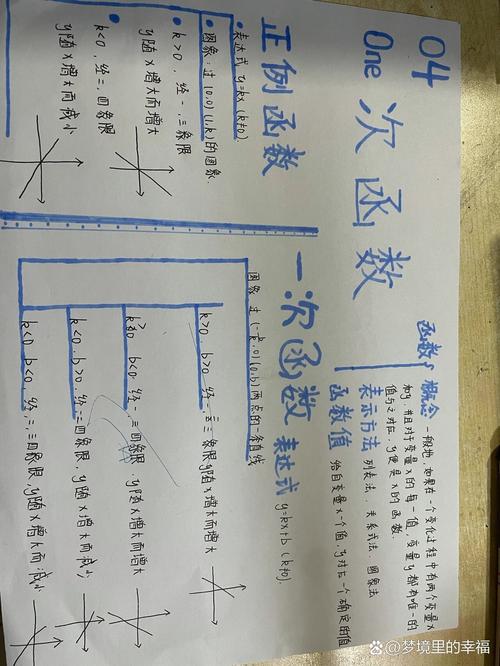 04
One 次函数
函数 概念
一般地,如果在一个变化过程中有两个变量x
和y,并且对于变量x的每一值,变量y都有唯一的
值与之对应,y便是x的函数.
表示方法 列表法、关系式法、图象法
函数值 给自变量x一个值,y对应一个确定的值
正例函数
表达式 y=kx(k≠0)
图象:过(0,0)(1,k)的图象.
k>0,经一、三象限
y随x增大而增大
k<0,经二、四象限
y随x增大而减小
一次函数 表达式 y=kx+b(k≠0).
图象 过(-,0)(0,b)两点的一条直线
k>0 b>0 经一、二三象限y随x增大而增大
b<0 经一、三四象限,y随x增大而增大
k<0,b>0,经一二四象限,y随x增大而减小
k<0 b<0,经二,三四象限,y随x增大而减小
知乎 @梦境里的幸福